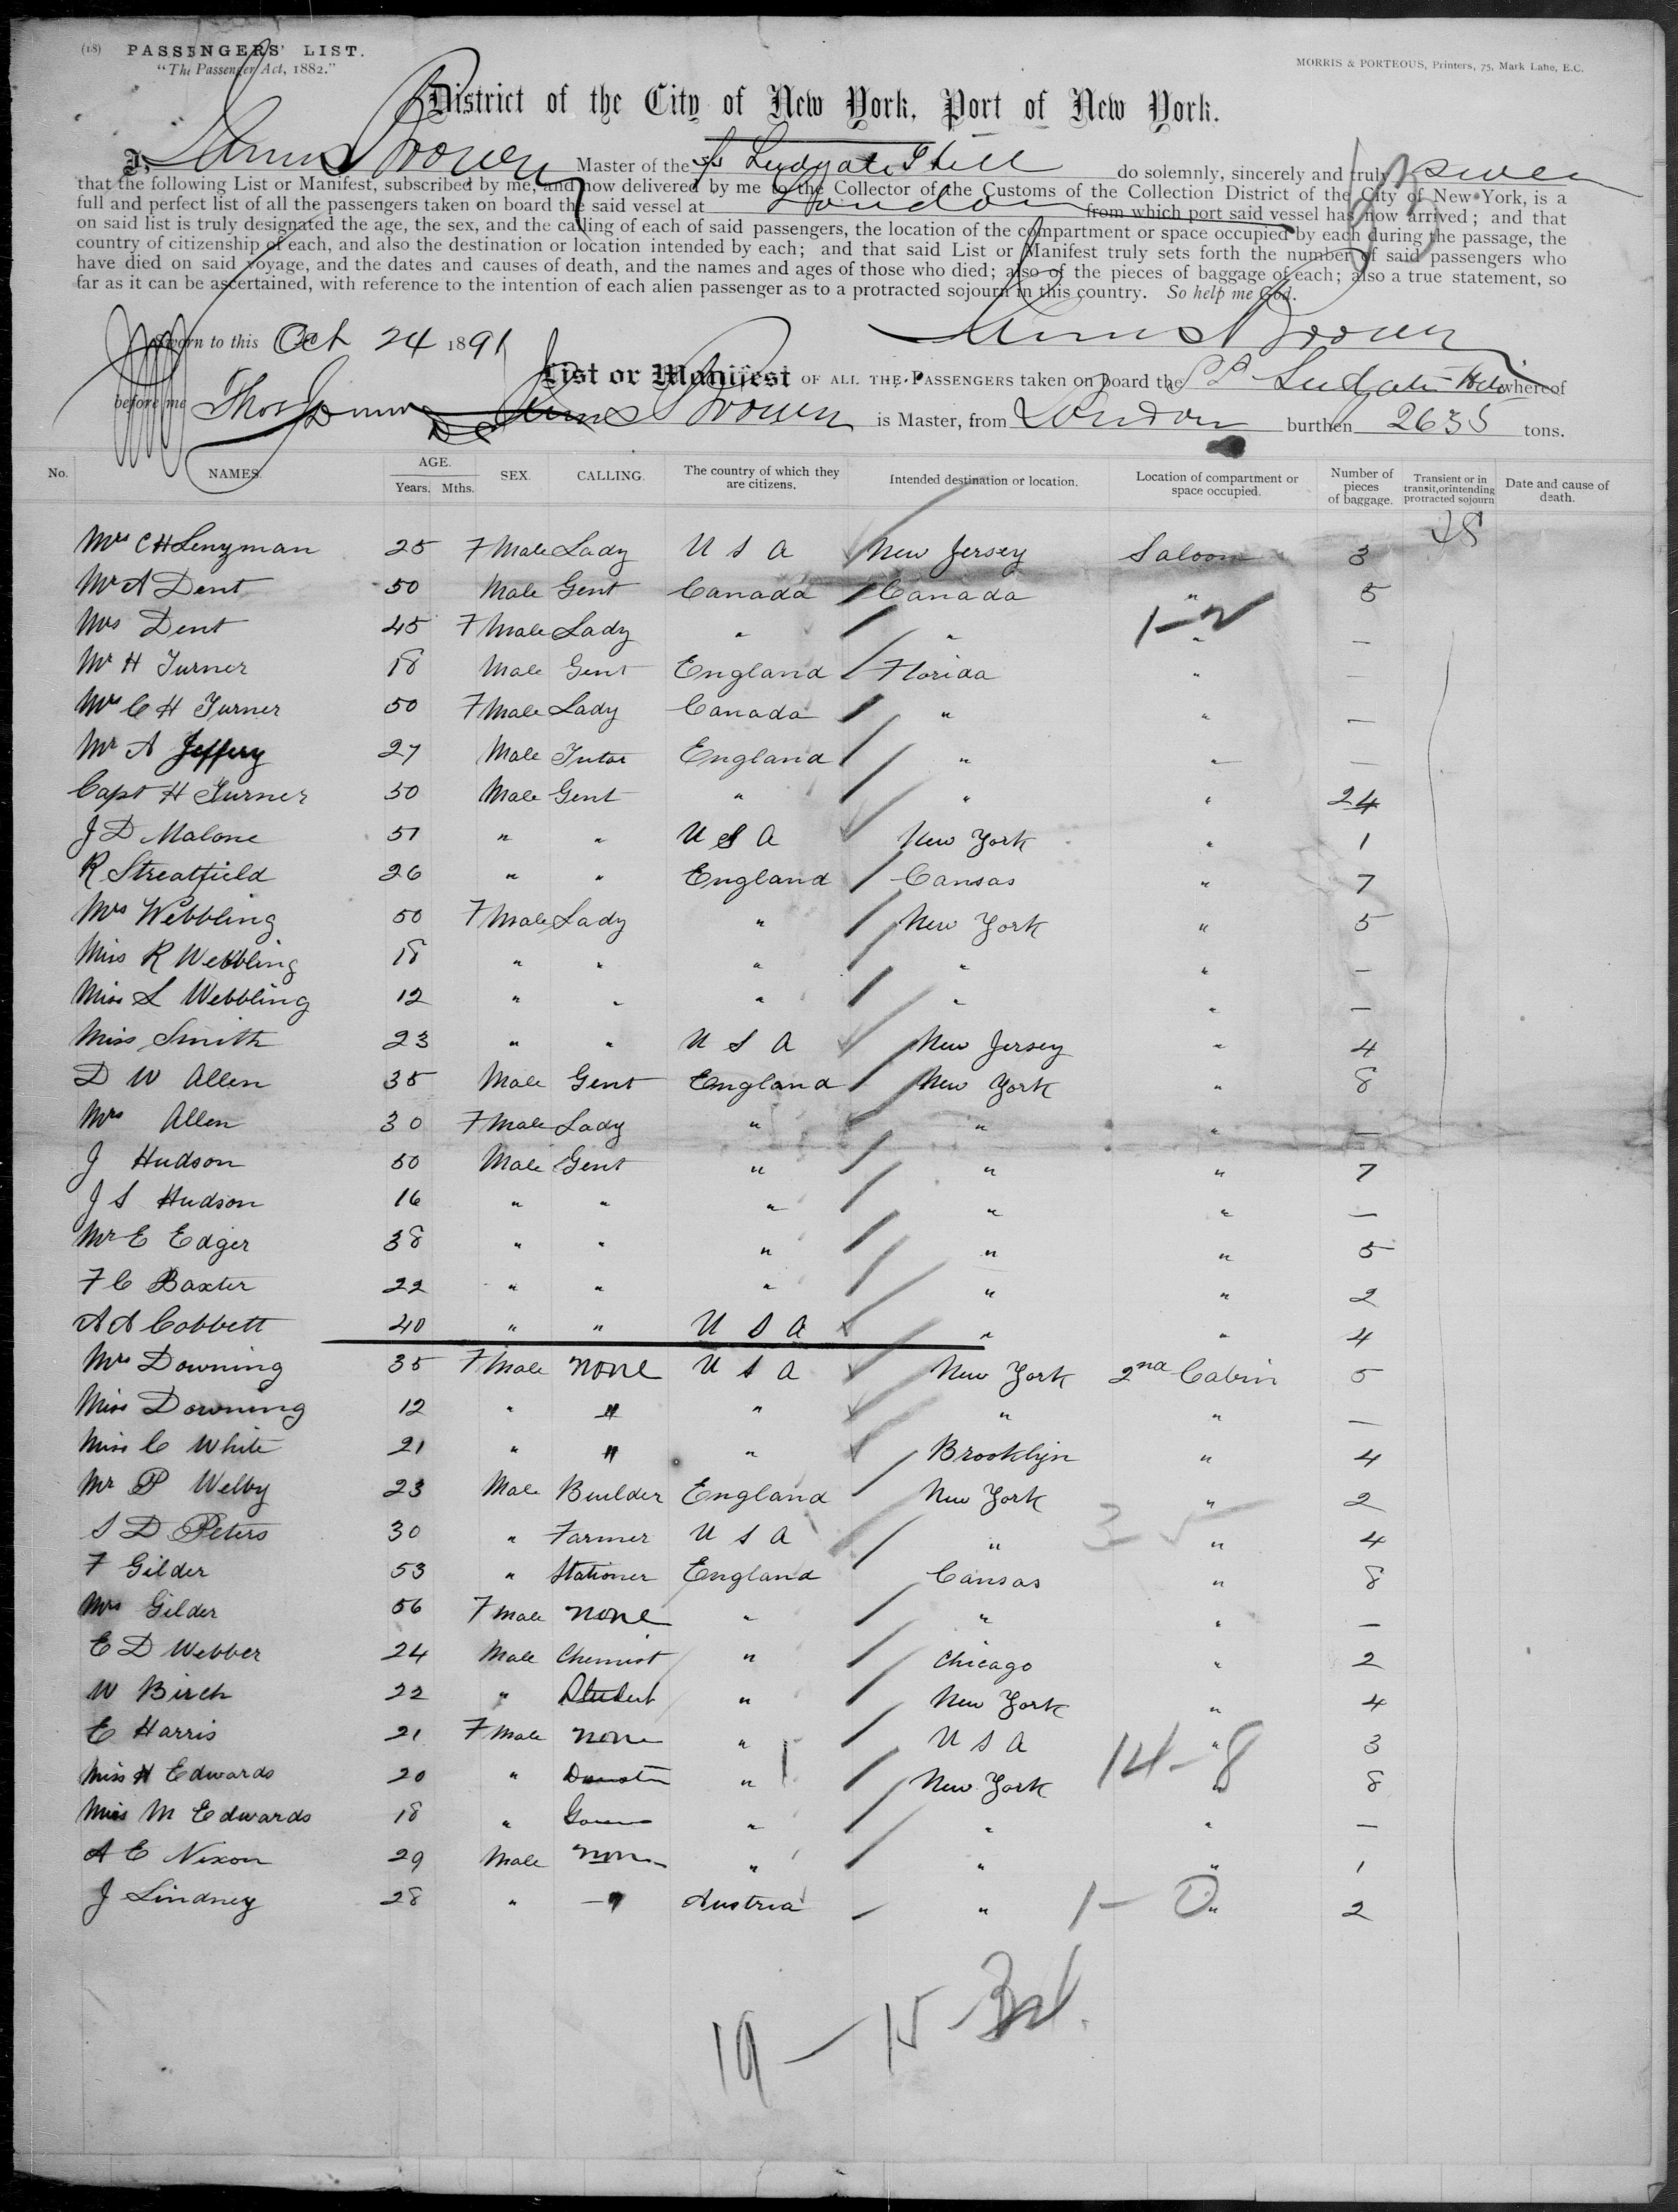 (18) PASSENGERS' LIST.
"The Passenger Act, 1882."
MORRIS & PORTEOUS, Printers, 75, Mark Lane, E.C.
District of the City of New York, Port of New York.
I, Brown Master of the SS Ludgate Hill do solemnly, sincerely and truly swear
that the following List or Manifest, subscribed by me, and now delivered by me to the Collector of the Customs of the Collection District of the City of New York, is a
full and perfect list of all the passengers taken on board the said vessel at London from which port said vessel has now arrived; and that
on said list is truly designated the age, the sex, and the calling of each of said passengers, the location of the compartment or space occupied by each during the passage, the
country of citizenship of each, and also the destination or location intended by each; and that said List or Manifest truly sets forth the number of said passengers who
have died on said voyage, and the dates and causes of death, and the names and ages of those who died; also of the pieces of baggage of each; also a true statement, so
far as it can be ascertained, with reference to the intention of each alien passenger as to a protracted sojourn in this country. So help me God.
Brown
Sworn to this Oct 24 1891
List or Manifest OF ALL THE PASSENGERS taken on board the SS Ludgate Hill whereof
before me Thos Brown is Master, from London burthen 2635 tons.
No. NAMES. AGE. Years. Mths. SEX. CALLING. The country of which they are citizens. Intended destination or location. Location of compartment or space occupied. Number of pieces of baggage. Transient or in transit, or intending protracted sojourn Date and cause of death.
Mrs C H Lenzman 25 Fmale Lady U S A New Jersey Saloon 3
Mr A Dent 50 Male Gent Canada Canada " 5
Mrs Dent 45 Fmale Lady " " " —
1-2
Mr H Turner 18 Male Gent England Florida " —
Mrs C H Turner 50 Fmale Lady Canada " " —
Mr A Jeffery 27 Male Tutor England " " —
Capt H Turner 50 Male Gent " " " 24
J D Malone 51 " " U S A New York " 1
R Streatfield 26 " " England Cansas " 7
Mrs Webbling 50 Fmale Lady " New York " 5
Miss R Webbling 18 " " " " " —
Miss L Webbling 12 " " " " " —
Miss Smith 23 " " U S A New Jersey " 4
D W Allen 35 Male Gent England New York " 8
Mrs Allen 30 Fmale Lady " " " —
J Hudson 50 Male Gent " " " 7
J S Hudson 16 " " " " " —
Mr E Edger 38 " " " " " 5
F C Baxter 22 " " " " " 2
A A Cobbett 40 " " U S A " " 4
Mrs Downing 35 Fmale none U S A New York 2nd Cabin 5
Miss Downing 12 " " " " " —
Miss C White 21 " " " Brooklyn " 4
Mr P Welby 23 Male Builder England New York " 2
S D Peters 30 " Farmer U S A " " 4
F Gilder 53 " Stationer England Cansas " 8
Mrs Gilder 56 Fmale none " " " —
E D Webber 24 Male Chemist " Chicago " 2
W Birch 22 " Student " New York " 4
E Harris 21 Fmale none " U S A " 3
14-8
Miss H Edwards 20 " " New York " 8
Miss M Edwards 18 " " " " —
A E Nixon 29 Male none " " " 1
J Lindney 28 " — " Austria " " 2
1-0
19 — 15